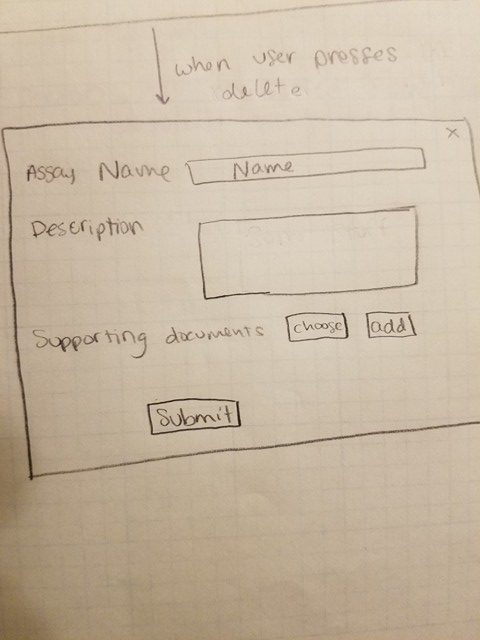 when user presses
delete
x
Assay Name Name
Description
Supporting documents choose add
Submit